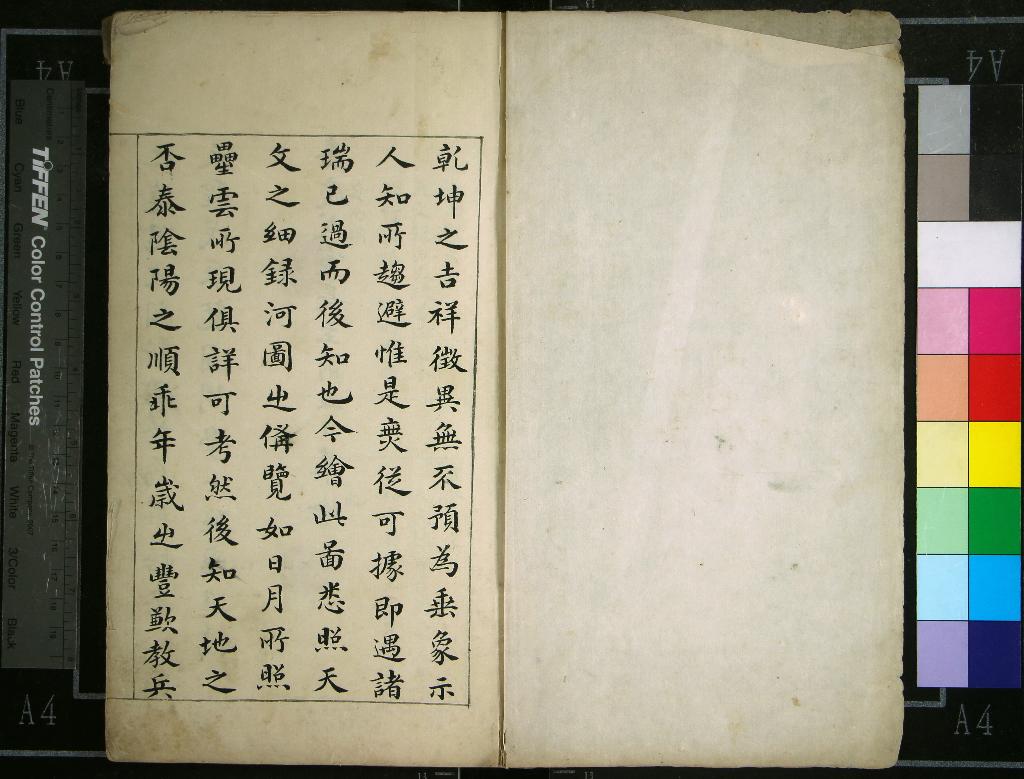 乾坤之吉祥徵異無不預為垂象示
人知所趨避惟是爽從可據即遇諸
瑞已過而後知也今繪此啚悉照天
文之細録河圖㞢備覽如日月所照
壘雲所現俱詳可考然後知天地之
否泰陰陽之順乖年歲㞢豐歉教兵
TIFFEN Color Control Patches
Centimetres
Blue Cyan Green Yellow Red Magenta White 3/Color Black
A4
A4
A4
A4